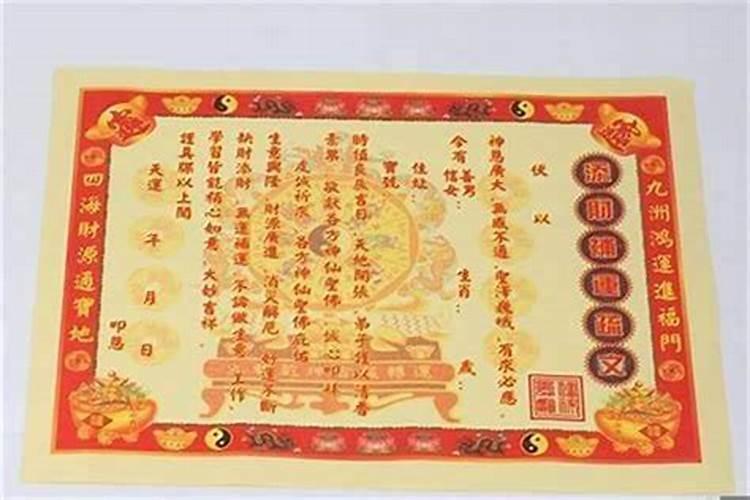 九洲鴻運進福門
添財補運疏文
伏以
神恩廣大 無感不通 聖澤巍峨 有求必應
今有 善男 信女： 生肖： 歲：
住址：
寶號
時值良辰吉日 天地開張 弟子僅以清香
素果 敬獻各方神仙聖佛 誠心叩拜
虔誠祈求 各方神仙聖佛庇佑
生意興隆 財源廣進 消災解厄 好運不斷
缺財添財 無運補運 不論做生意 工作、
學習皆能稱心如意 大妙吉祥
謹具疏以上聞
天運 年 月 日 叩懇
四海財源通寶地